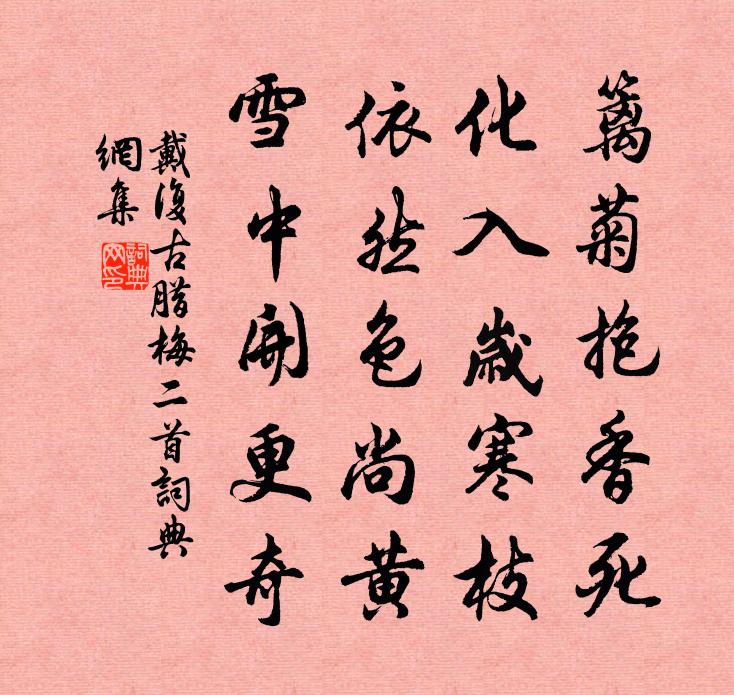 籬菊抱香死
化入歲寒枝
依然色尚黃
雪中開更奇
戴復古腊梅二首詞典
網集
詞典網印